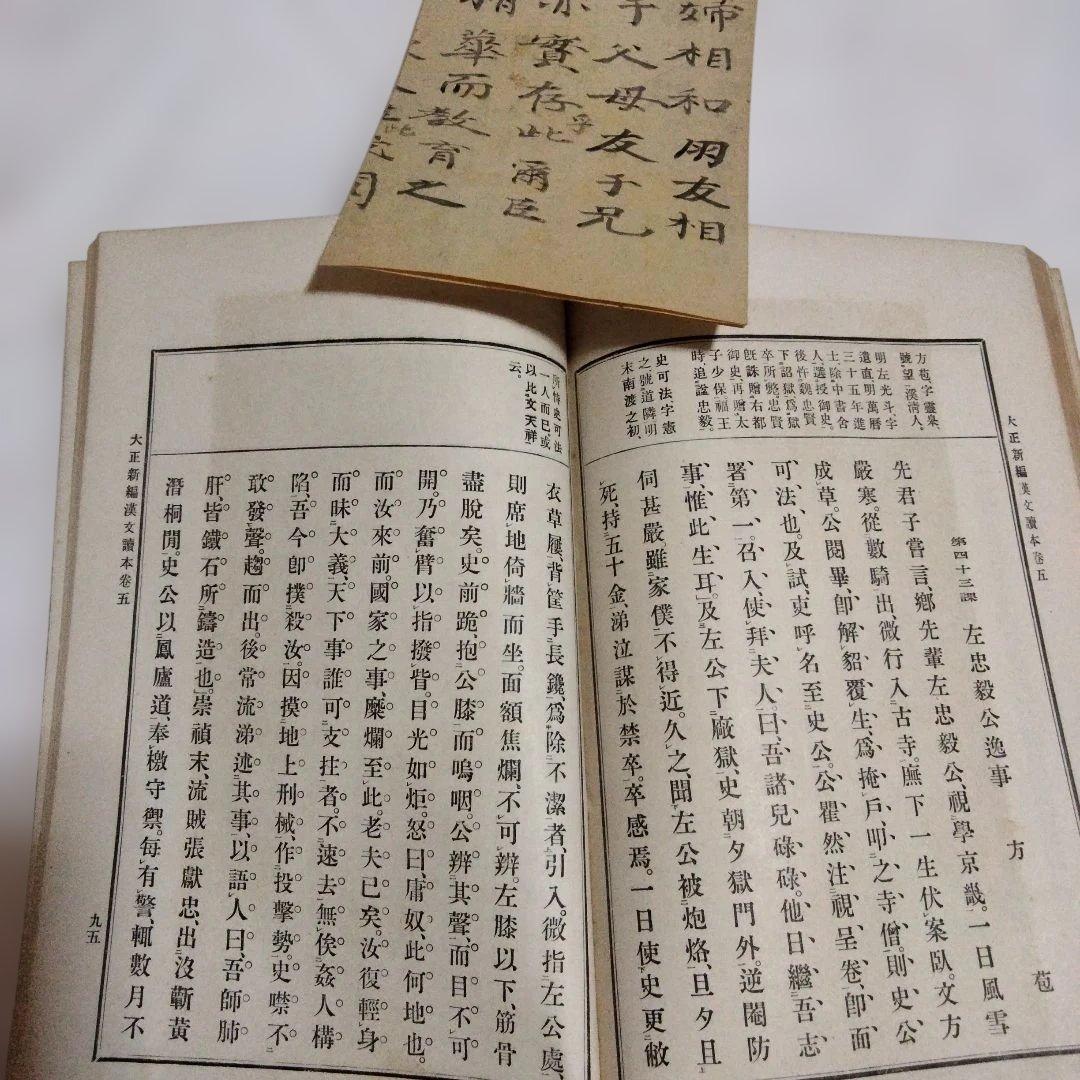 婦相和朋友相
子父母友于兄
赤實存此爾臣
孚
華而教育之
大正新編漢文讀本卷五
方苞、字靈皐、
號望溪、清人。
明左光斗、字
遺直、明萬曆
三十五年進
士、除中書舍
人、選授御史。
後忤魏忠賢
下詔獄、爲獄
卒所斃。忠賢
旣誅、贈右都
御史、再贈太
子少保。福王
時追諡忠毅。
史可法、字憲
之、號道隣、明
末南渡之初、
第四十三課　左忠毅公逸事　方苞
先君子嘗言、鄕先輩左忠毅公、視學京畿。一日風雪
嚴寒。從數騎出、微行入古寺。廡下一生伏案臥。文方
成草。公閱畢、卽解貂覆生、爲掩戶、叩之寺僧。則史公
可法也。及試、吏呼名至史公。公瞿然注視、呈卷、卽面
署第一。召入、使拜夫人。曰、吾諸兒碌碌。他日繼吾志
事、惟此生耳。及左公下廠獄、史朝夕獄門外。逆閹防
伺甚嚴、雖家僕不得近。久之、聞左公被炮烙、旦夕且
死、持五十金、涕泣謀於禁卒。卒感焉。一日使史更敝
所恃史可法
一人而已。或
以此文天祥
云。
衣草屨、背筐手長鑱、爲除不潔者、引入。微指左公處、
則席地倚牆而坐。面額焦爛、不可辨。左膝以下、筋骨
盡脫矣。史前跪、抱公膝而嗚咽。公辨其聲、而目不可
開。乃奮臂以指撥眥。目光如炬。怒曰、庸奴、此何地也。
而汝來前。國家之事、糜爛至此。老夫已矣。汝復輕身
而昧大義、天下事誰可支拄者。不速去、無俟姦人構
陷、吾今卽撲殺汝。因摸地上刑械、作投擊勢。史噤不
敢發聲。趨而出。後常流涕述其事、以語人曰、吾師肺
肝、皆鐵石所鑄造也。崇禎末、流賊張獻忠、出沒蘄黃
潛桐閒。史公以鳳廬道、奉檄守禦。每有警、輒數月不
大正新編漢文讀本卷五
九五